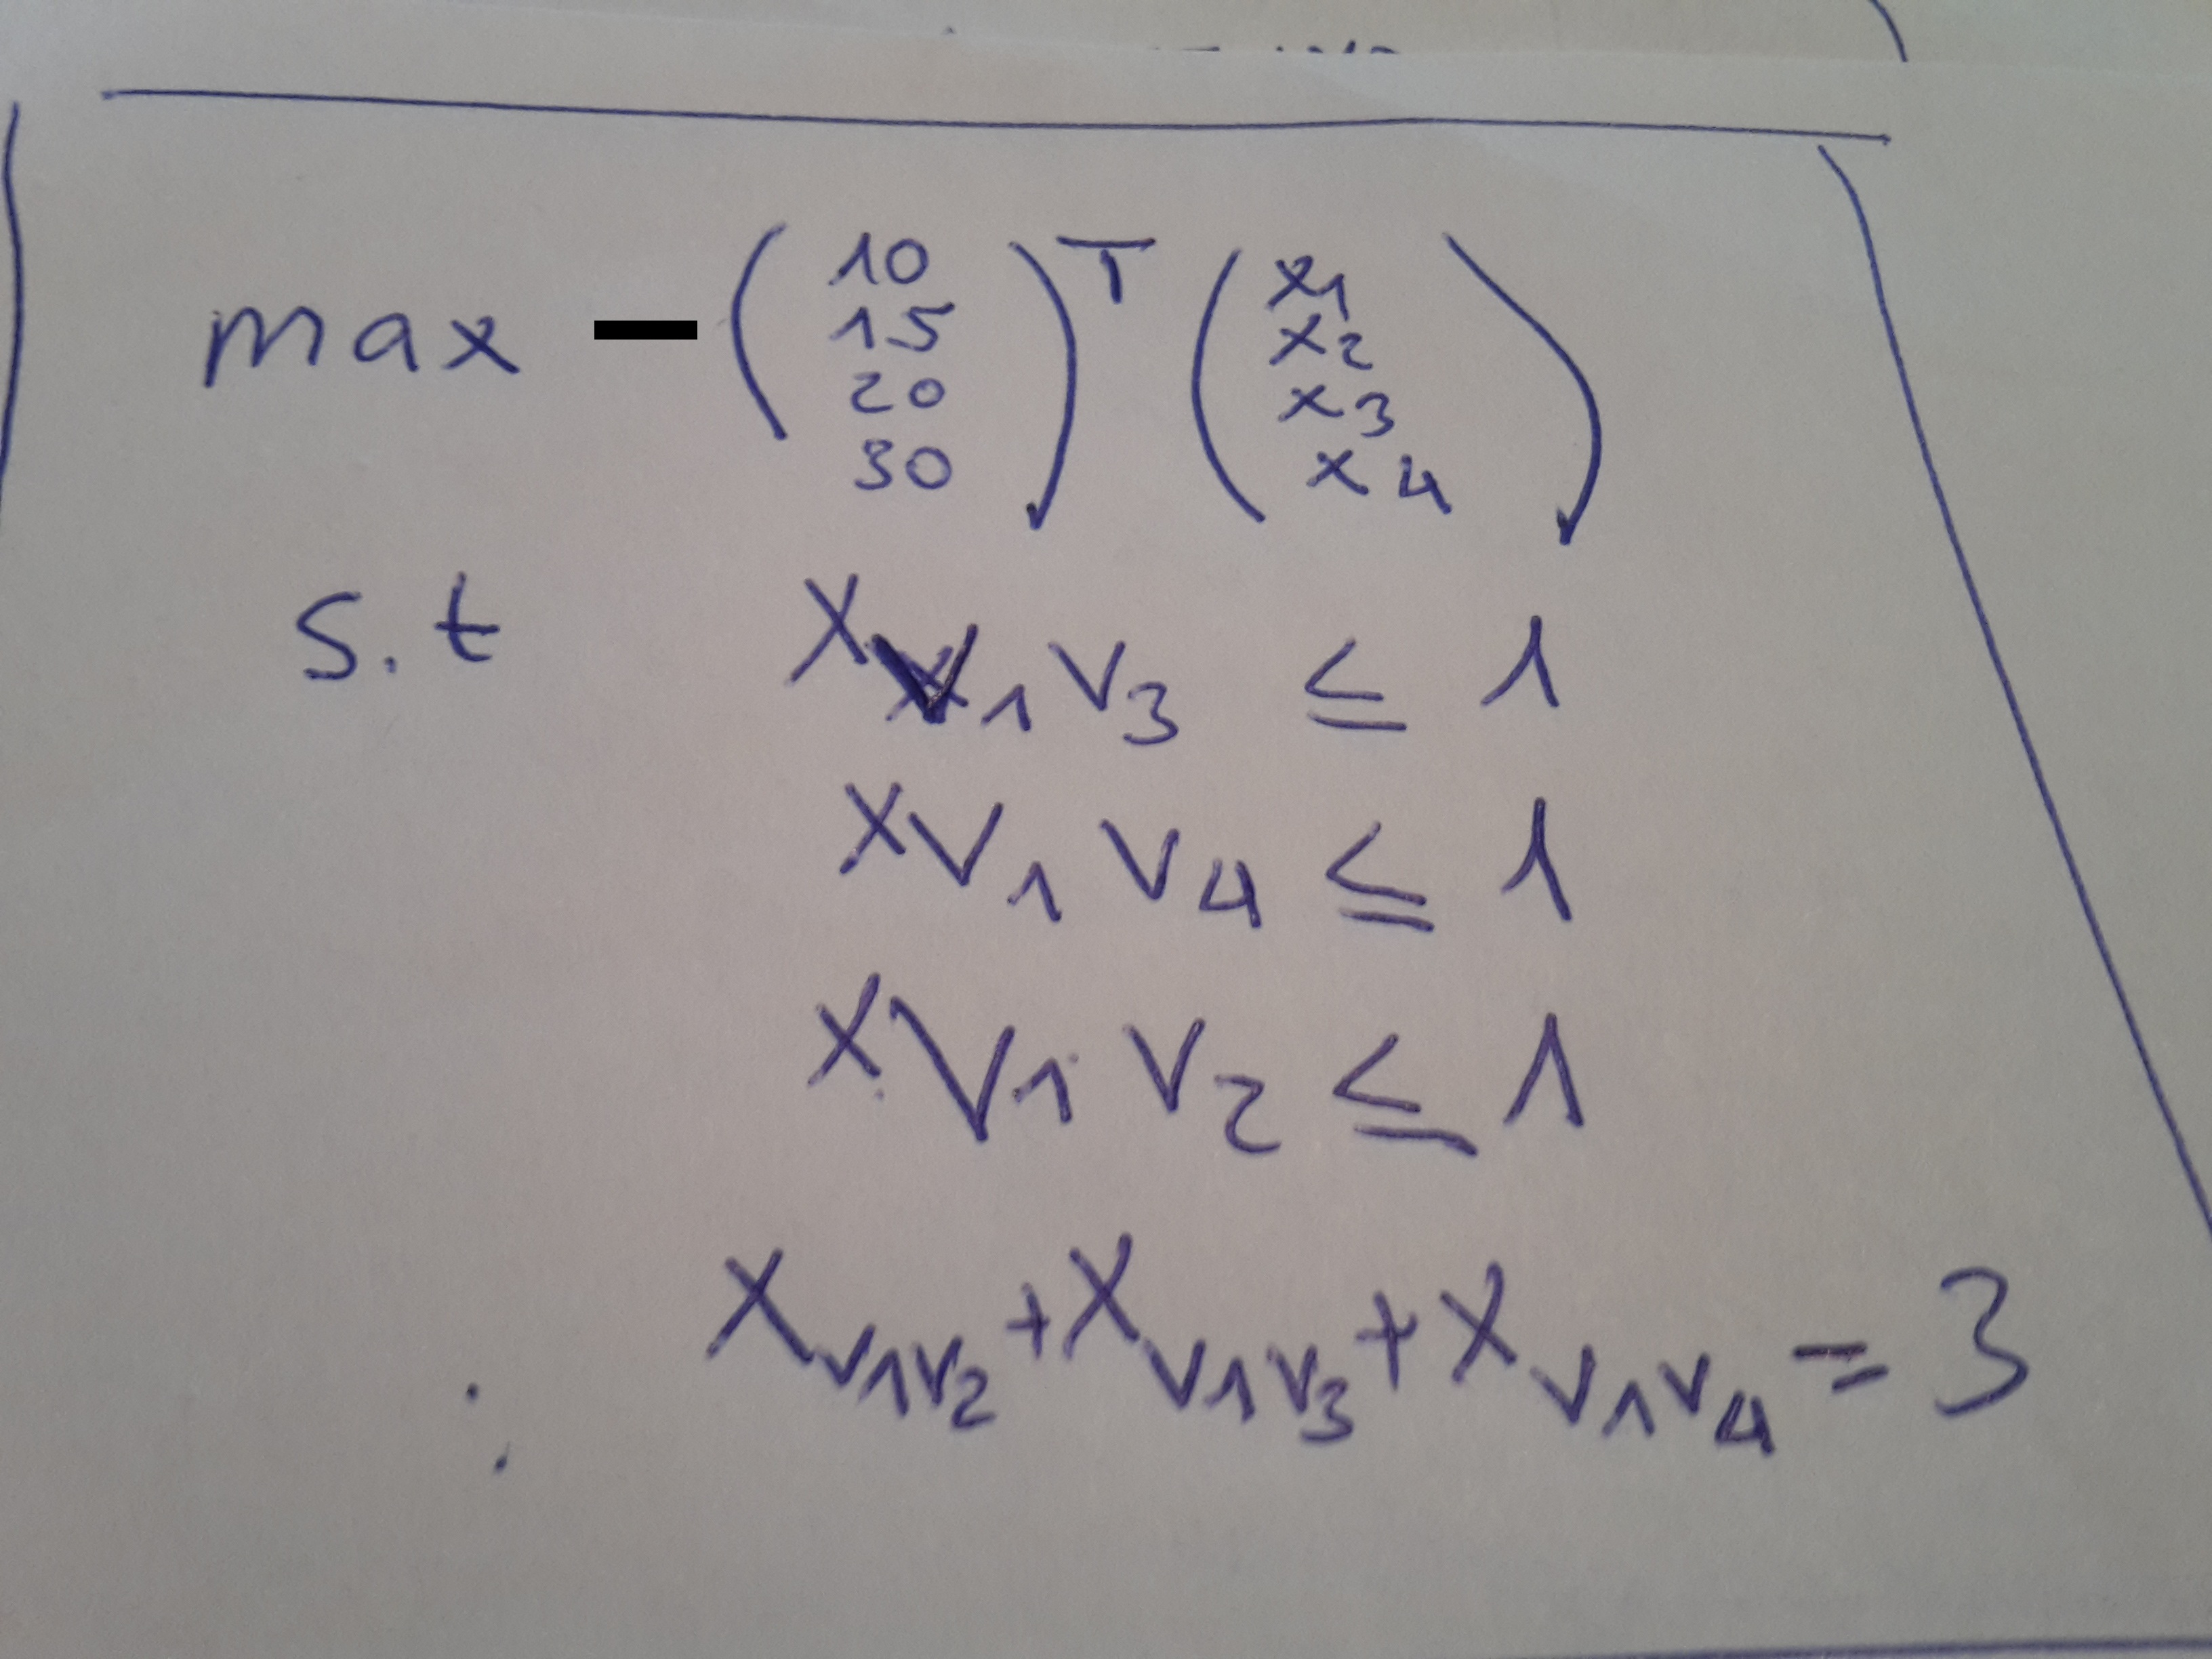 max − (10 15 20 30)ᵀ (x1 x2 x3 x4)
s.t x_{v1v3} ≤ 1
x_{v1v4} ≤ 1
x_{v1v2} ≤ 1
: x_{v1v2} + x_{v1v3} + x_{v1v4} = 3